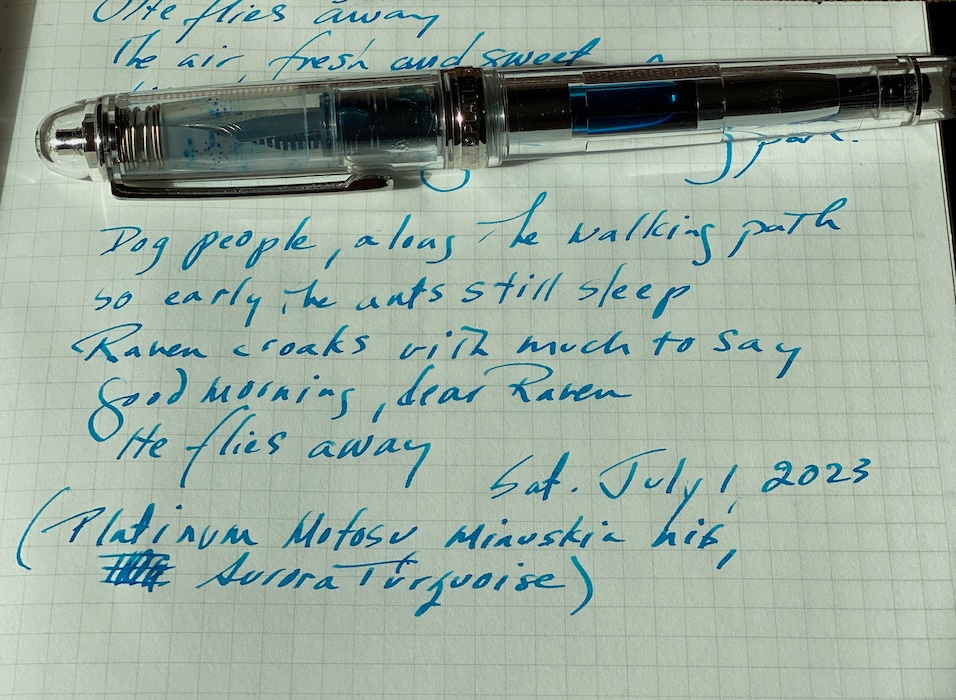 He flies away
The air fresh and sweet
Dog people, along the walking path
so early, the ants still sleep
Raven croaks with much to say
Good morning, dear Raven
He flies away
Sat. July 1, 2023
(Platinum Motosu Minuskin nib,
Aurora Turquoise)